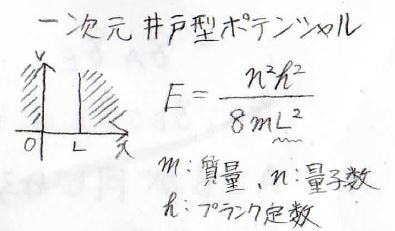 一次元井戸型ポテンシャル
V
O L x
E = n²h² / 8mL²
m:質量、n:量子数
h:プランク定数